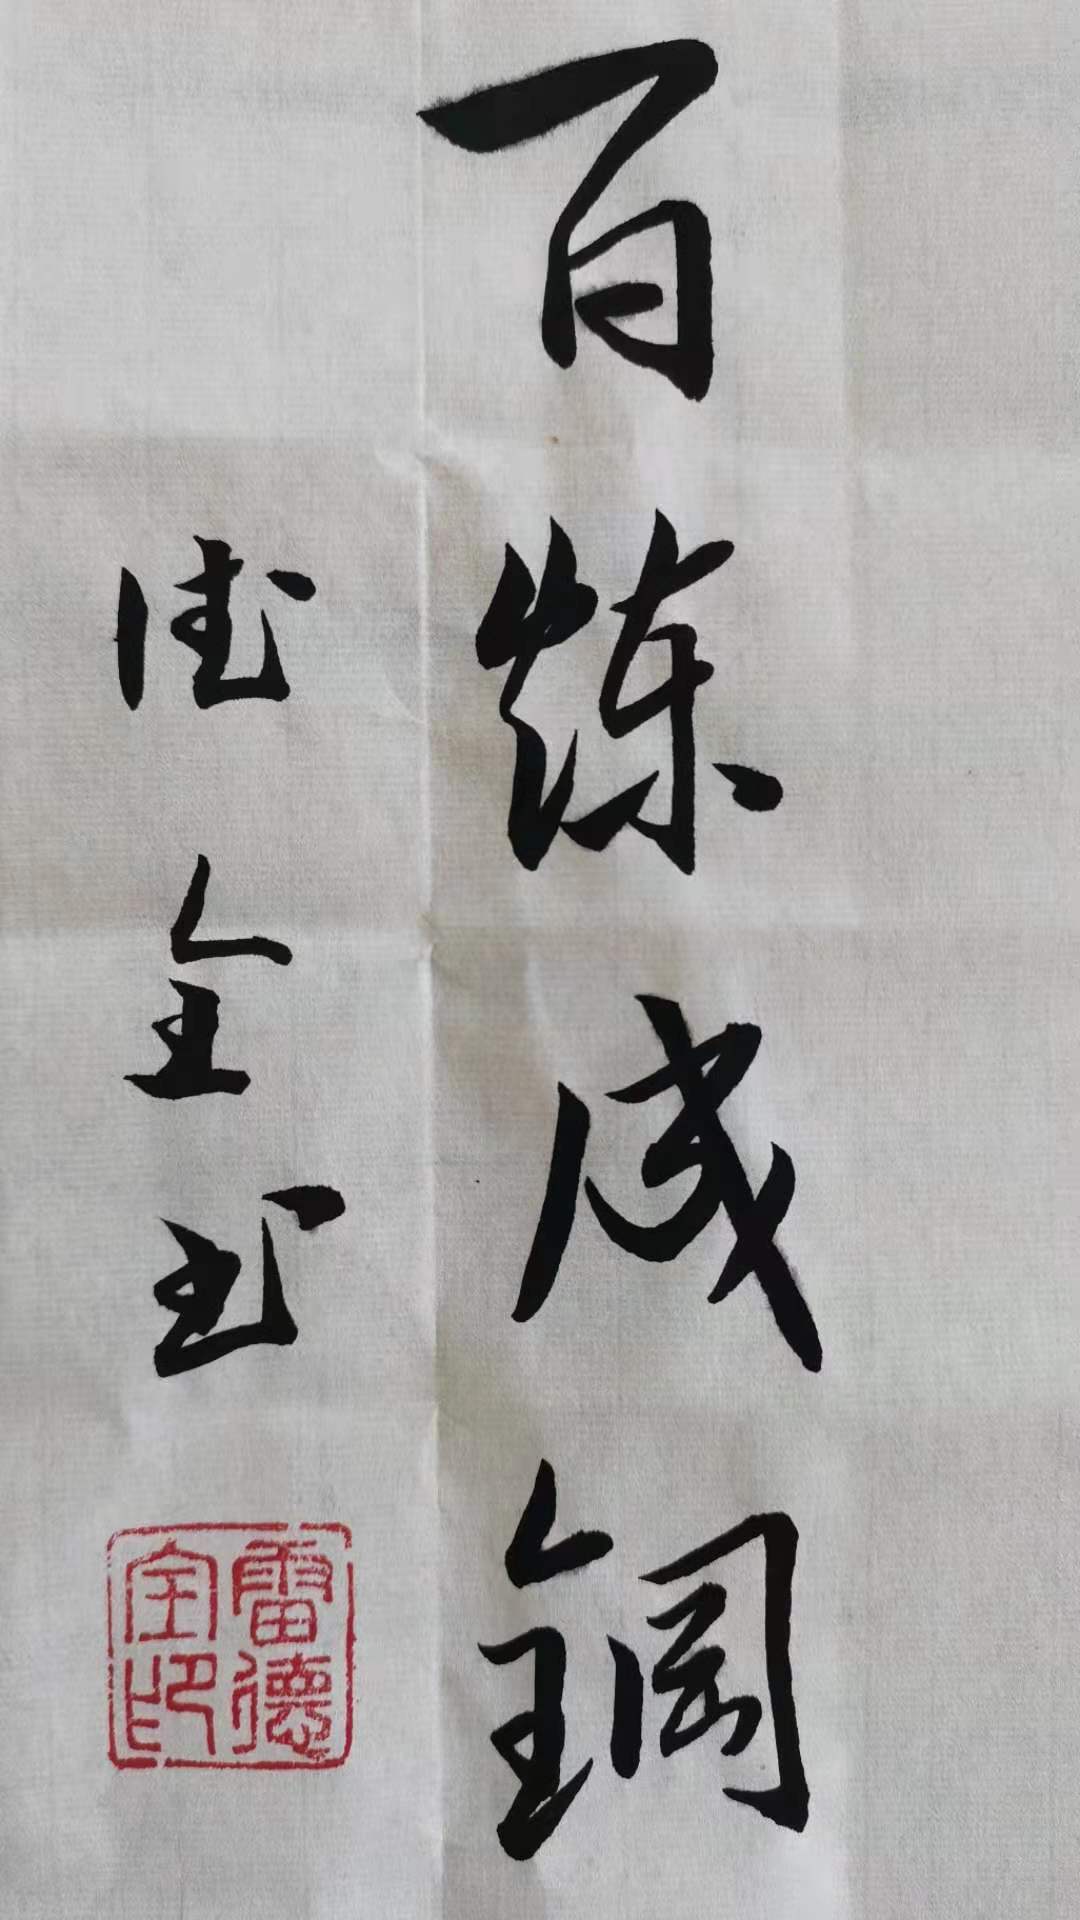 百煉成鋼
德全书
雷德全印